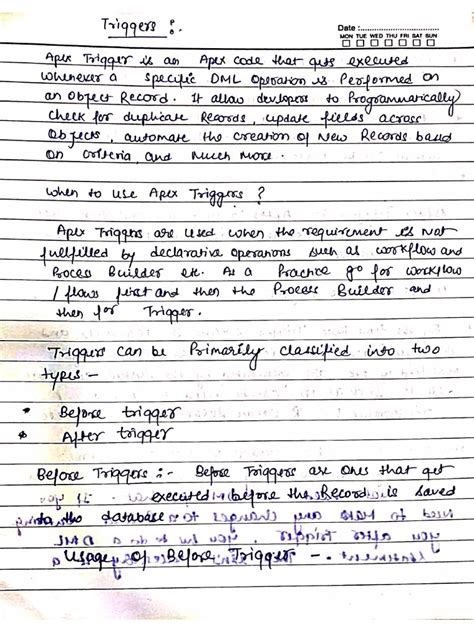 Triggers :
Date :
MON TUE WED THU FRI SAT SUN
Apex Trigger is an Apex code that gets executed
whenever a specific DML operation is Performed on
an object Record. It allow developers to Programmatically
check for duplicate Records, update fields across
objects, automate the creation of New Records based
on criteria, and Much More.
When to use Apex Triggers ?
Apex Triggers are used when the requirement is Not
fulfilled by declarative operations such as workflow and
Process Builder etc. As a Practice go for workflow
/ flows first and then the Process Builder and
then for Trigger.
Triggers can be Primarily classified into two
types -
* Before trigger
* After trigger
Before Triggers :- Before Triggers are Ones that get
executed before the Record is saved
to the database
Usage of Before Trigger -.